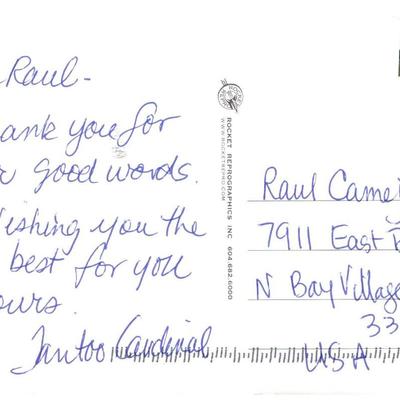 Raul-
ank you for
good words.
ishing you the
best for you
ours.
Tantoo Cardinal
ROCKET REPROGRAPHICS INC 604.682.6000
WWW.ROCKETREPRO.COM
Raul Camei
7911 East
N Bay Village
33
USA